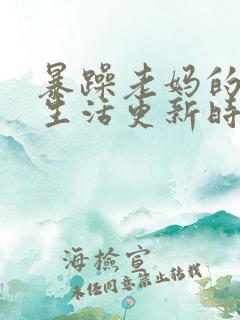 暴躁老妈的
生活更新时
海檢宣
未经同意禁止转载